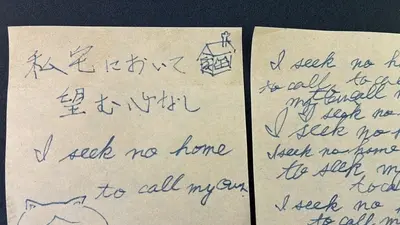 私宅において
望む心なし
I seek no home
to call my own
I seek no ho
to call to ca
I seek no
I seek no
I seek no home
to seek my
to ca
I seek no
to call my